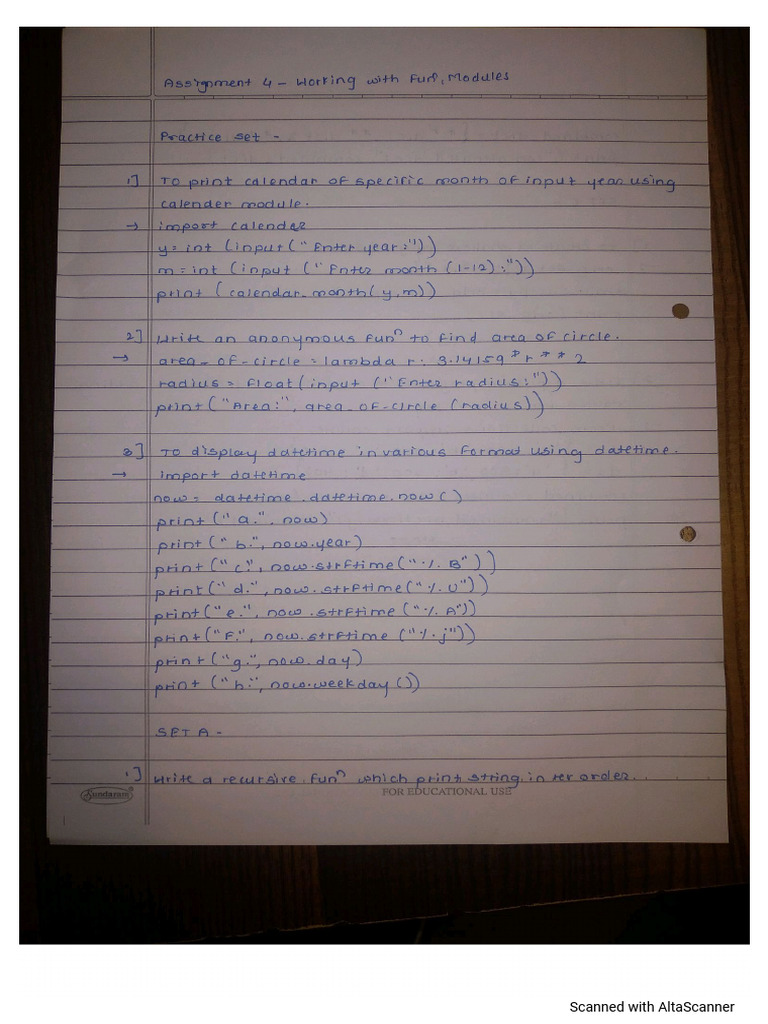 Assignment 4 - Working with Funⁿ, Modules
Practice set -
1] To print calendar of specific month of input year using
calender module.
→ import calendar
y= int (input("Enter year:"))
m = int (input ("Enter month (1-12):"))
print (calendar.month(y,m))
2] Write an anonymous funⁿ to find area of circle.
→ area_of_circle = lambda r: 3.14159 * r ** 2
radius = float(input ("Enter radius:"))
print("Area:", area_of_circle (radius))
3] To display datetime in various format using datetime.
→ import datetime
now = datetime.datetime.now()
print ("a.", now)
print ("b.", now.year)
print ("c.", now.strftime("%B"))
print("d.", now.strftime("%U"))
print("e.", now.strftime ("%A"))
print("f.", now.strftime ("%j"))
print("g.", now.day)
print ("h.", now.weekday ())
SET A -
1] Write a recursive funⁿ which print string in rer order.
Sundaram®
FOR EDUCATIONAL USE
Scanned with AltaScanner